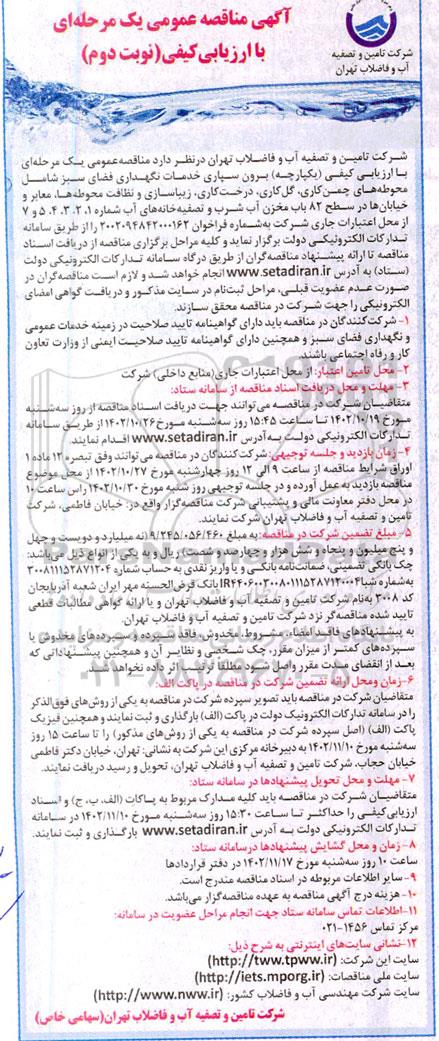 آگهی مناقصه عمومی یک مرحله‌ای
با ارزیابی کیفی (نوبت دوم)
شرکت تامین و تصفیه
آب و فاضلاب تهران
شرکت تامین و تصفیه آب و فاضلاب تهران درنظر دارد مناقصه عمومی یک مرحله‌ای
با ارزیابی کیفی (یکپارچه) برون سپاری خدمات نگهداری فضای سبز شامل
محوطه‌های چمن‌کاری، گل‌کاری، درخت‌کاری، زیباسازی و نظافت محوطه‌ها، معابر و
خیابان‌ها در سطح ۸۲ باب مخزن آب شرب و تصفیه‌خانه‌های آب شماره ۱، ۲، ۳، ۴، ۵ و ۷
از محل اعتبارات جاری شرکت به‌شماره فراخوان ۲۰۰۲۰۹۴۸۴۲۰۰۰۱۶۲ را از طریق سامانه
تدارکات الکترونیکی دولت برگزار نماید و کلیه مراحل برگزاری مناقصه از دریافت اسناد
مناقصه تا ارائه پیشنهاد مناقصه‌گران از طریق درگاه سامانه تدارکات الکترونیکی دولت
(ستاد) به آدرس www.setadiran.ir انجام خواهد شد و لازم است مناقصه‌گران در
صورت عدم عضویت قبلی، مراحل ثبت‌نام در سایت مذکور و دریافت گواهی امضای
الکترونیکی را جهت شرکت در مناقصه محقق سازند.
۱- شرکت‌کنندگان در مناقصه باید دارای گواهینامه تایید صلاحیت در زمینه خدمات عمومی
و نگهداری فضای سبز و همچنین دارای گواهینامه تایید صلاحیت ایمنی از وزارت تعاون
کار و رفاه اجتماعی باشند.
۲- محل تامین اعتبار: از محل اعتبارات جاری (منابع داخلی) شرکت
۳- مهلت و محل دریافت اسناد مناقصه از سامانه ستاد:
متقاضیان شرکت در مناقصه می‌توانند جهت دریافت اسناد مناقصه از روز سه‌شنبه
مورخ ۱۴۰۲/۱۰/۱۹ تا ساعت ۱۵:۴۵ روز سه‌شنبه مورخ ۱۴۰۲/۱۰/۲۶ از طریق سامانه
تدارکات الکترونیکی دولت به آدرس www.setadiran.ir اقدام نمایند.
۴- زمان بازدید و جلسه توجیهی: شرکت‌کنندگان در مناقصه می‌توانند وفق تبصره ۱۲ ماده ۱
اوراق شرایط مناقصه از ساعت ۹ الی ۱۲ روز چهارشنبه مورخ ۱۴۰۲/۱۰/۲۷ از محل موضوع
مناقصه بازدید به عمل آورده و در جلسه توجیهی روز شنبه مورخ ۱۴۰۲/۱۰/۳۰ راس ساعت ۱۰
در محل دفتر معاونت مالی و پشتیبانی شرکت مناقصه‌گزار واقع در: خیابان فاطمی، شرکت
تامین و تصفیه آب و فاضلاب تهران شرکت نمایند.
۵- مبلغ تضمین شرکت در مناقصه: به مبلغ ۹/۲۴۵/۰۵۶/۴۶۰ (نه میلیارد و دویست و چهل
و پنج میلیون و پنجاه و شش هزار و چهارصد و شصت) ریال و به یکی از انواع ذیل می‌باشد:
چک بانکی تضمینی، ضمانت‌نامه بانکی و یا واریز نقدی به حساب شماره ۳۰۰۸۱۱۱۵۲۸۷۱۲۰۴
به‌شماره شبا بانک قرض‌الحسنه مهر ایران شعبه آذربایجان
کد ۳۰۰۸ به‌نام شرکت تامین و تصفیه آب و فاضلاب تهران و یا ارائه گواهی مطالبات قطعی
تایید شده مناقصه‌گر نزد شرکت تامین و تصفیه آب و فاضلاب تهران.
به پیشنهادهای فاقد امضاء، مشروط، مخدوش، فاقد سپرده و سپرده‌های مخدوش یا
سپرده‌های کمتر از میزان مقرر، چک شخصی و نظایر آن و همچنین پیشنهاداتی که
بعد از انقضای مدت مقرر واصل شود مطلقا ترتیب اثر داده نخواهد شد.
۶- زمان ومحل ارائه تضمین شرکت در مناقصه در پاکت الف:
متقاضیان شرکت در مناقصه باید تصویر سپرده شرکت در مناقصه به یکی از روش‌های فوق‌الذکر
را در سامانه تدارکات الکترونیک دولت در پاکت (الف) بارگذاری و ثبت نمایند و همچنین فیزیک
پاکت (الف) (اصل سپرده شرکت در مناقصه به یکی از روش‌های مذکور) را تا ساعت ۱۵ روز
سه‌شنبه مورخ ۱۴۰۲/۱۱/۱۰ به دبیرخانه مرکزی این شرکت به نشانی: تهران، خیابان دکتر فاطمی
خیابان حجاب، شرکت تامین و تصفیه آب و فاضلاب تهران، تحویل و رسید دریافت نمایند.
۷- مهلت و محل تحویل پیشنهادها در سامانه ستاد:
متقاضیان شرکت در مناقصه باید کلیه مدارک مربوط به پاکات (الف، ب، ج) و اسناد
ارزیابی کیفی را حداکثر تا ساعت ۱۵:۳۰ روز سه‌شنبه مورخ ۱۴۰۲/۱۱/۱۰ در سامانه
تدارکات الکترونیکی دولت به آدرس www.setadiran.ir بارگذاری و ثبت نمایند.
۸- زمان و محل گشایش پیشنهادها درسامانه ستاد:
ساعت ۱۰ روز سه‌شنبه مورخ ۱۴۰۲/۱۱/۱۷ در دفتر قراردادها
۹- سایر اطلاعات مربوطه در اسناد مناقصه مندرج است.
۱۰- هزینه درج آگهی مناقصه به عهده مناقصه‌گزار می‌باشد.
۱۱- اطلاعات تماس سامانه ستاد جهت انجام مراحل عضویت در سامانه:
مرکز تماس ۱۴۵۶-۰۲۱
۱۲- نشانی سایت‌های اینترنتی به شرح ذیل:
سایت این شرکت: (http://tww.tpww.ir)
سایت ملی مناقصات: (http://iets.mporg.ir)
سایت شرکت مهندسی آب و فاضلاب کشور: (http://www.nww.ir)
شرکت تامین و تصفیه آب و فاضلاب تهران (سهامی خاص)